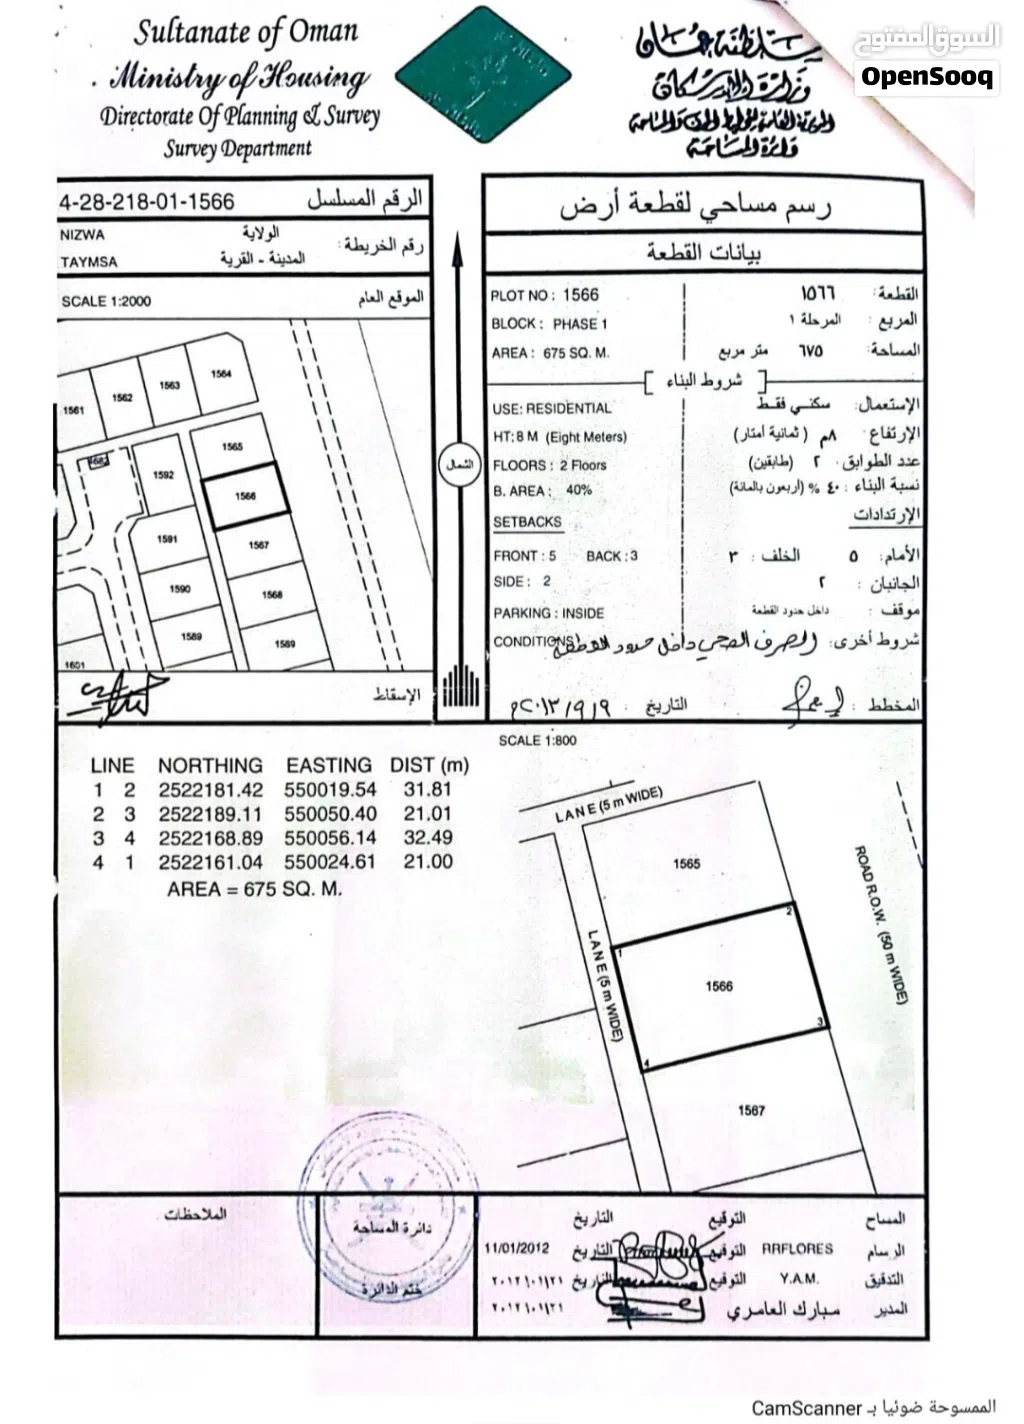 Sultanate of Oman
Ministry of Housing
Directorate Of Planning & Survey
Survey Department
سلطنة عمان
وزارة الإسكان
المديرية العامة للتخطيط والمساحة
دائرة المساحة
السوق المفتوح
OpenSooq
4-28-218-01-1566 الرقم المسلسل
NIZWA الولاية
TAYMSA المدينة - القرية
رقم الخريطة:
SCALE 1:2000 الموقع العام
1561 1562 1563 1564
1565
1592
1566
1591
1567
1590
1568
1589
1589
1601
الإسقاط
الشمال
رسم مساحي لقطعة أرض
بيانات القطعة
PLOT NO : 1566 القطعة: ١٥٦٦
BLOCK : PHASE 1 المربع : المرحلة ١
AREA : 675 SQ. M. المساحة: ٦٧٥ متر مربع
شروط البناء
USE: RESIDENTIAL الإستعمال: سكني فقط
HT: 8 M (Eight Meters) الإرتفاع : ٨م (ثمانية أمتار)
FLOORS : 2 Floors عدد الطوابق : ٢ (طابقين)
B. AREA : 40% نسبة البناء : ٤٠ % (أربعون بالمائة)
SETBACKS الإرتدادات
FRONT : 5 BACK : 3 الأمام: ٥ الخلف : ٣
SIDE : 2 الجانبان : ٢
PARKING : INSIDE موقف : داخل حدود القطعة
CONDITIONS شروط أخرى: الصرف الصحي داخل حدود القطعة
المخطط : التاريخ : ٢٠١٣/٩/٩م
SCALE 1:800
LINE NORTHING EASTING DIST (m)
1 2 2522181.42 550019.54 31.81
2 3 2522189.11 550050.40 21.01
3 4 2522168.89 550056.14 32.49
4 1 2522161.04 550024.61 21.00
AREA = 675 SQ. M.
LANE (5 m WIDE)
1565
ROAD R.O.W. (50 m WIDE)
LANE (5 m WIDE)
1 2
1566
3
4
1567
الملاحظات
دائرة المساحة
ختم الدائرة
المساح التوقيع التاريخ
الرسام RRFLORES التوقيع التاريخ 11/01/2012
التدقيق Y.A.M. التوقيع التاريخ
المدير مبارك العامري
الممسوحة ضوئيا بـ CamScanner